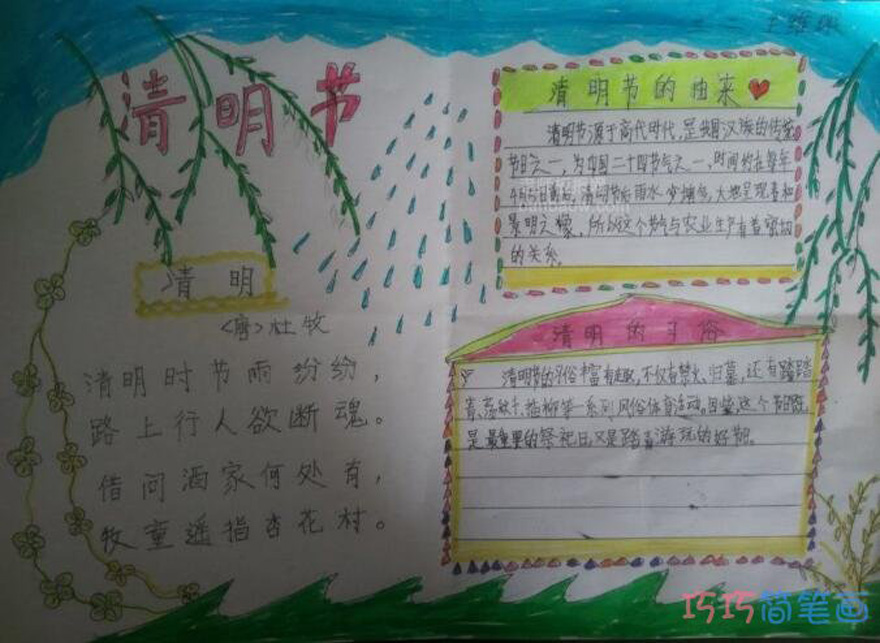 清明节
清明
<唐>杜牧
清明时节雨纷纷,
路上行人欲断魂。
借问酒家何处有,
牧童遥指杏花村。
清明节的由来
清明节源于商代时代,是我国汉族的传统
节日之一,为中国二十四节气之一,时间约在每年
月5日前后,清明节后雨水,大地呈现春和
景明之像,所以这个节气与农业生产有着密切
的关系。
清明的习俗
清明节的习俗丰富有趣,不仅有禁火、扫墓,还有踏踏
青、荡秋千、插柳等一系列风俗体育活动。因此,这个节日既
是最重要的祭祀日,又是踏青游玩的好节期。
巧巧简笔画